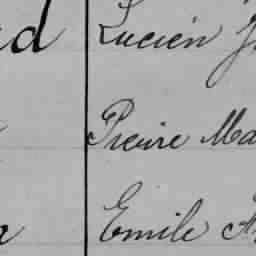 d Lucien
Pierre Ma
Emile